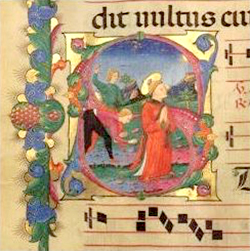 dit uultus cu